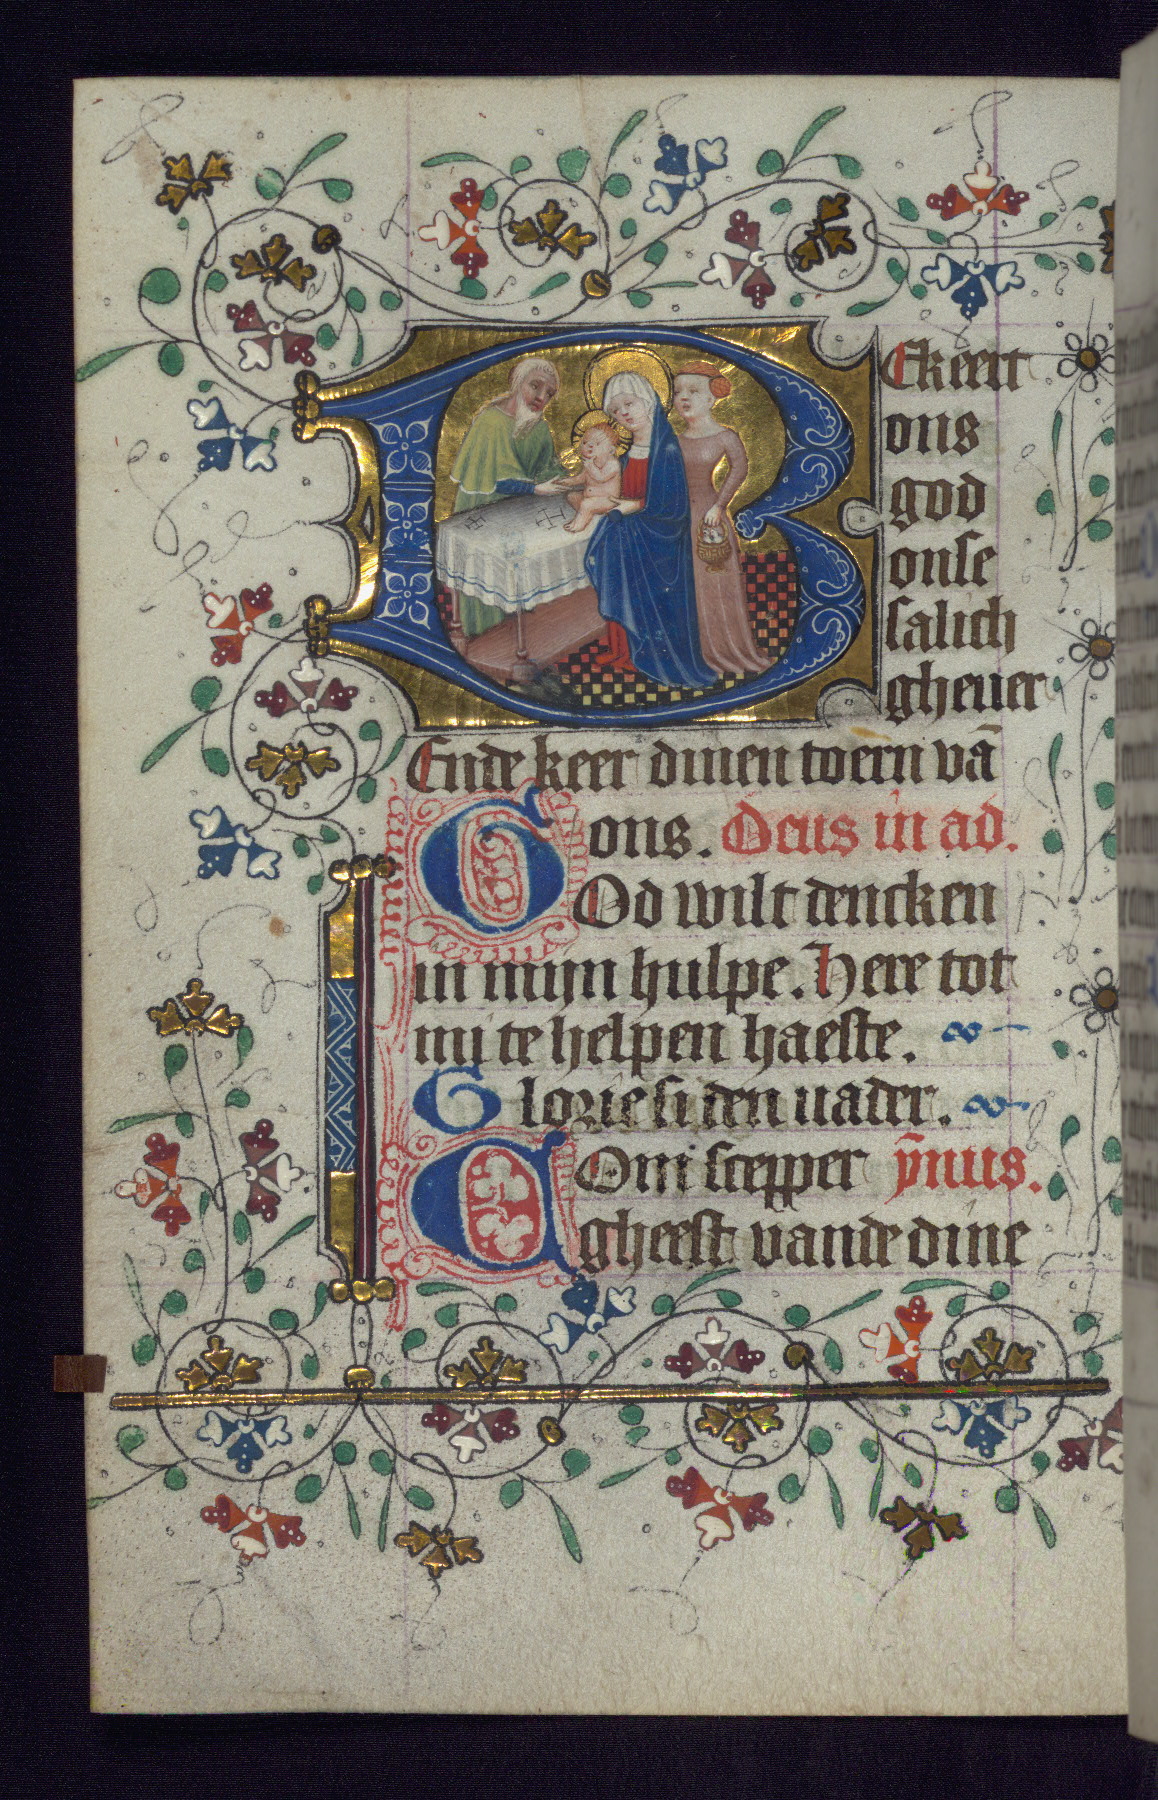 BEkeert
ons
god
onse
salich
gheuer
Ende keer dinen toern vā
ons. Deus in ad.
GOd wilt dencken
in mijn hulpe. Here tot
mi te helpen haeste.
Glorie si den uader.
COm scepper ȳnus.
gheest vande dine